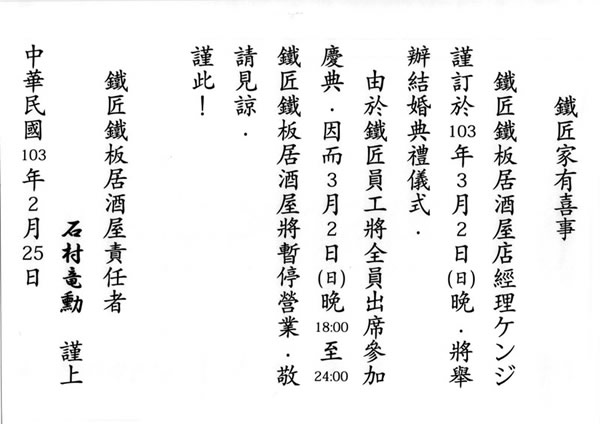 鐵匠家有喜事
鐵匠鐵板居酒屋店經理ケンジ
謹訂於103年3月2日(日)晚．將舉
辦結婚典禮儀式．
由於鐵匠員工將全員出席參加
慶典．因而3月2日(日)晚18:00至24:00
鐵匠鐵板居酒屋將暫停營業．敬
請見諒．
謹此！
鐵匠鐵板居酒屋責任者
石村竜勳 謹上
中華民國103年2月25日